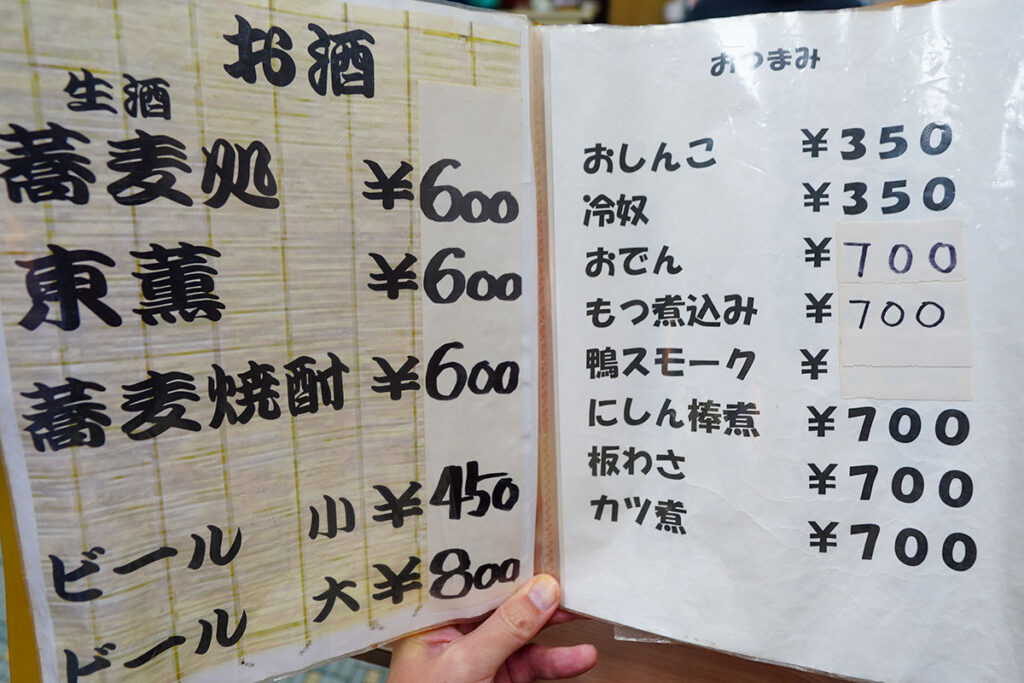 お酒
生酒
蕎麦処 ¥600
東薫 ¥600
蕎麦焼酎 ¥600
ビール 小 ¥450
ビール 大 ¥800
おつまみ
おしんこ ¥350
冷奴 ¥350
おでん ¥700
もつ煮込み ¥700
鴨スモーク ¥
にしん棒煮 ¥700
板わさ ¥700
カツ煮 ¥700